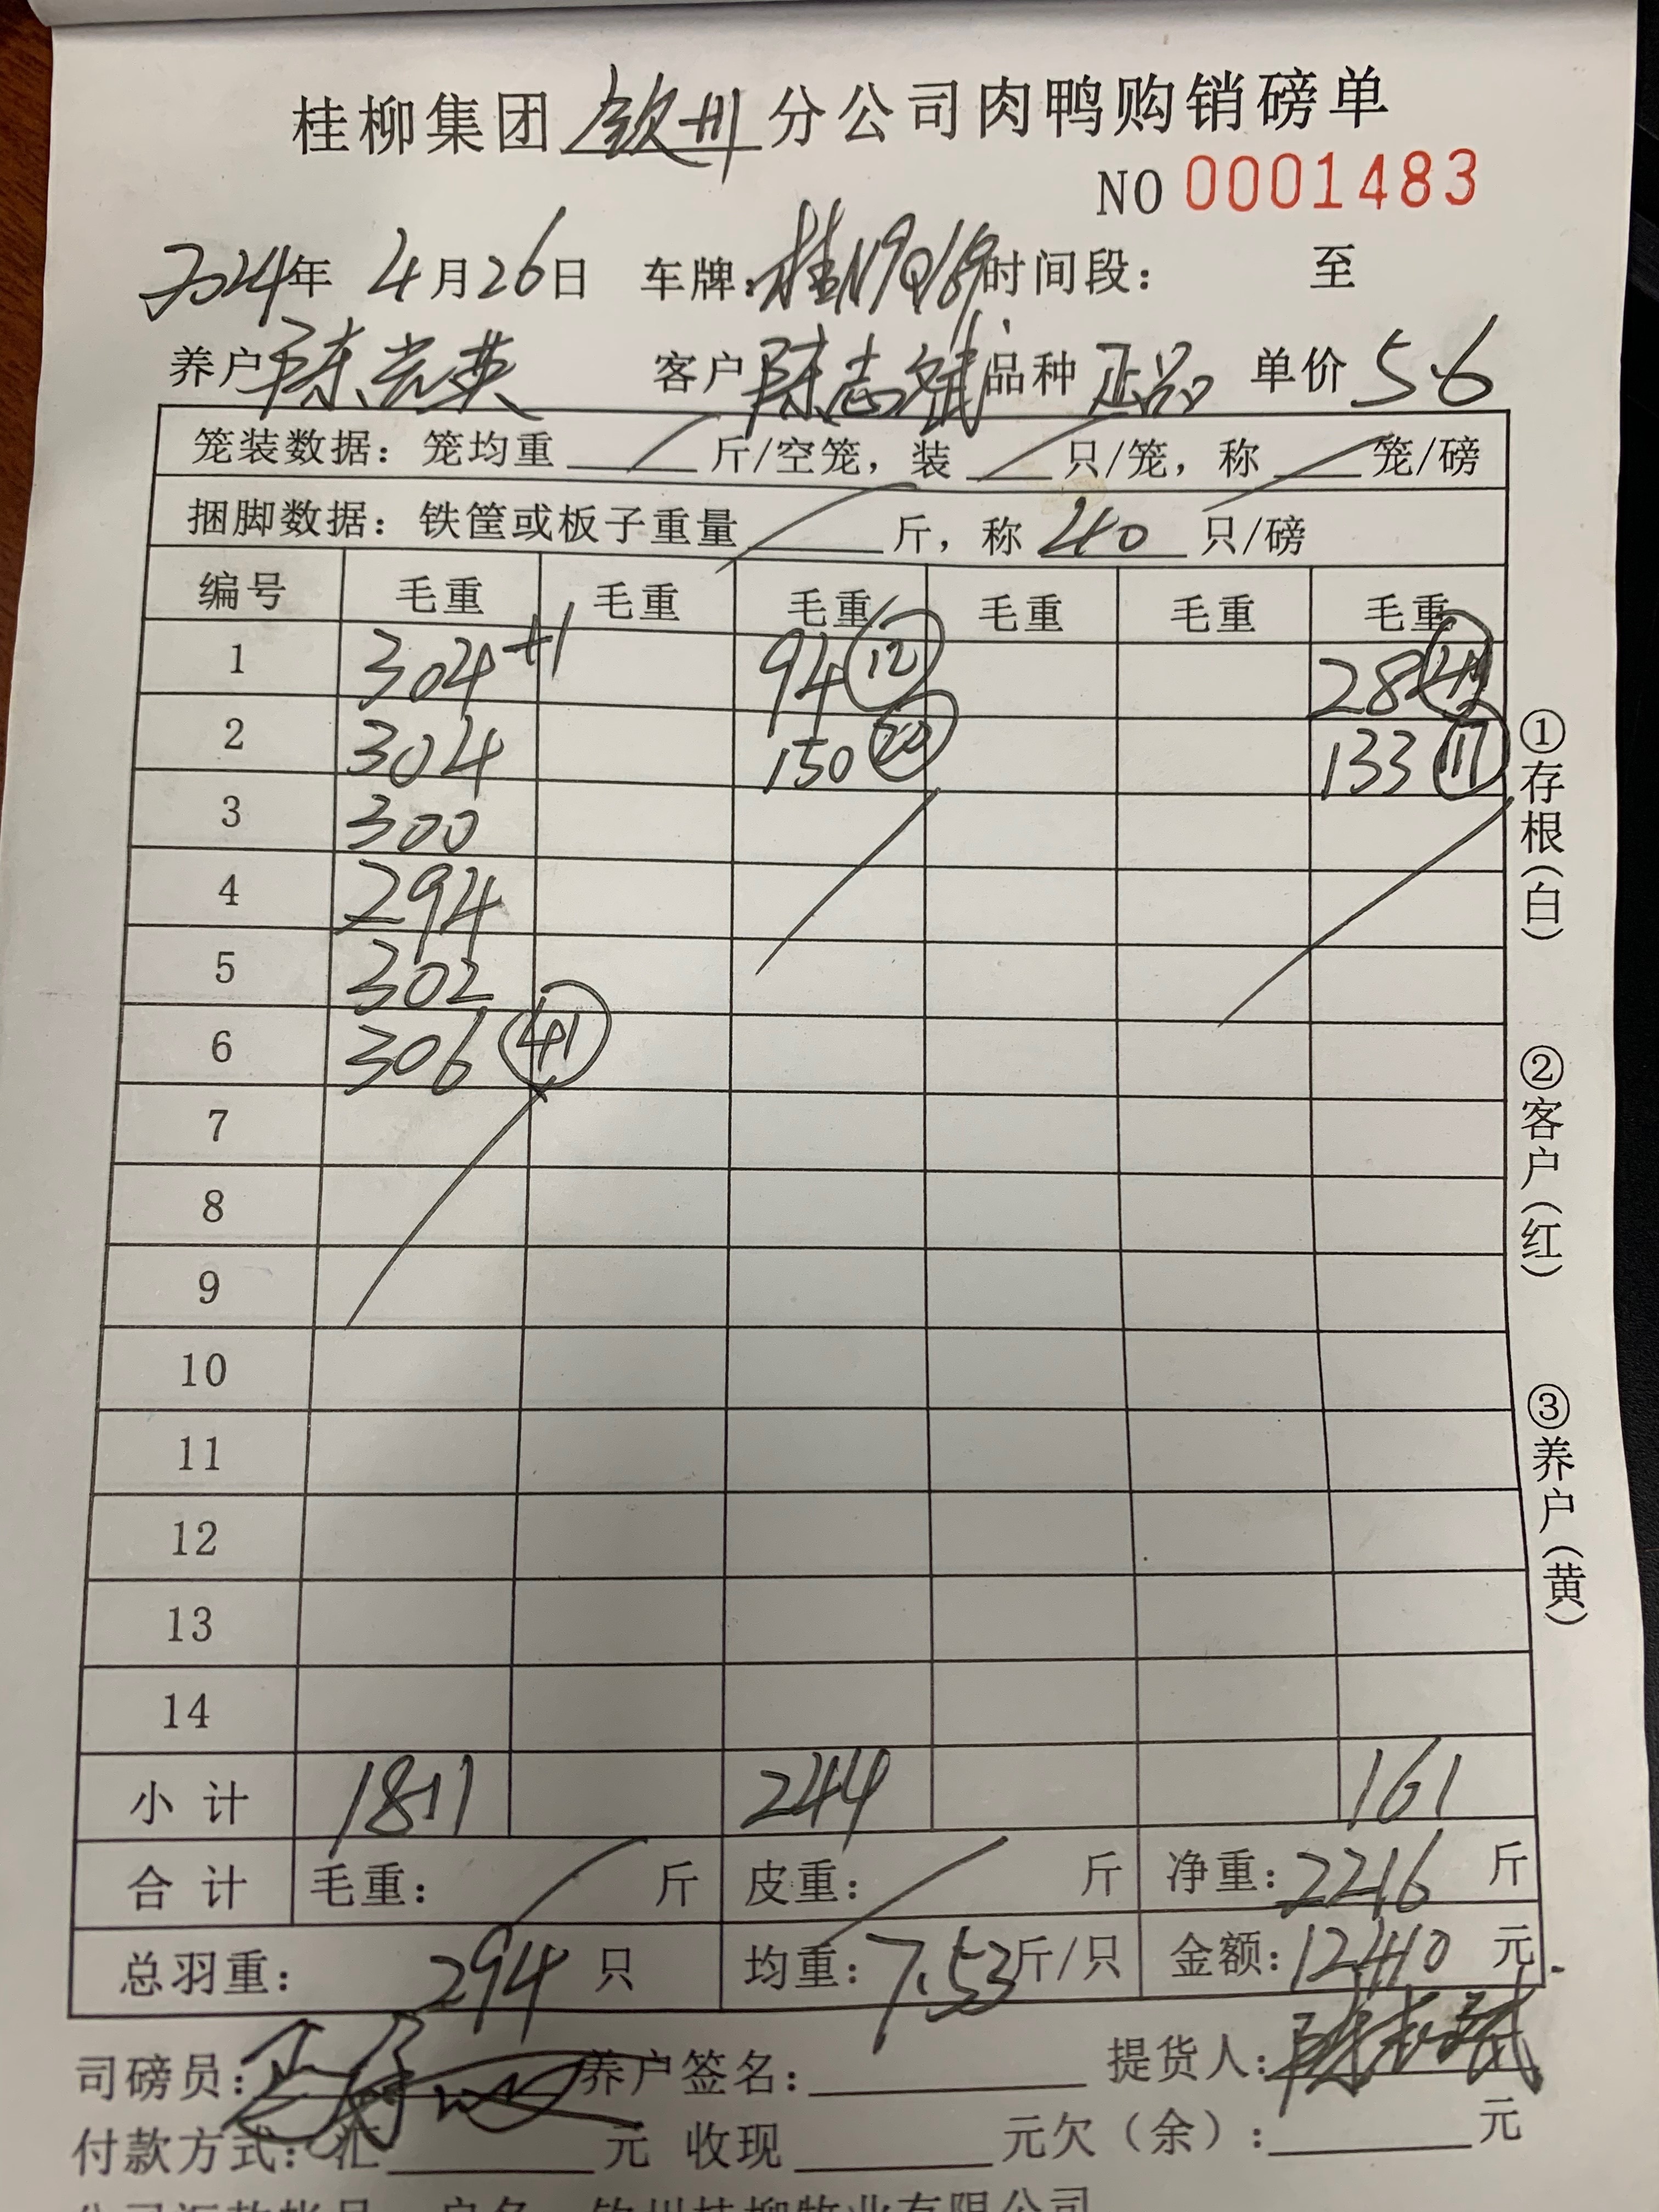 桂柳集团 钦州 分公司肉鸭购销磅单
NO 0001483
2024年 4月26日 车牌: 桂N9Q189 时间段: 至
养户 陈光英 客户 陈志斌 品种 正品 单价 5.6
笼装数据: 笼均重 斤/空笼, 装 只/笼, 称 笼/磅
捆脚数据: 铁筐或板子重量 斤, 称 40 只/磅
编号 毛重 毛重 毛重 毛重 毛重 毛重
1 304+1 94 (12) 28
2 304 150 (20) 133 (17)
3 300
4 294
5 302
6 306 (41)
7
8
9
10
11
12
13
14
小计 1811 244 161
合计 毛重: 斤 皮重: 斤 净重: 2216 斤
总羽重: 294 只 均重: 7.53 斤/只 金额: 12410 元
司磅员: 养户签名: 提货人: 陈志斌
付款方式: 汇 元 收现 元欠(余): 元
户名 钦州桂柳牧业有限公司
①存根(白)
②客户(红)
③养户(黄)